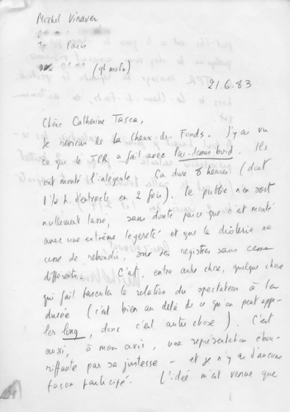 Michel Vinaver
Paris
21.6.83
Chère Catherine Tasca,
Je reviens de la Chaux-de-Fonds. J'y ai vu
ce que le TPR a fait avec Par-dessus bord. Ils
ont monté l'intégrale. Ça dure 8 heures (dont
1 h ½ d'entracte en 2 fois). Le public n'en sort
nullement lassé, sans doute parce que c'est monté
avec une extrême légèreté et que la drôlerie ne
cesse de rebondir, sur des registres sans cesse
différents. C'est, entre autre chose, quelque chose
qui fait basculer la relation du spectateur à la
durée (c'est bien au-delà de ce qu'on peut appe-
ler long, donc c'est autre chose). C'est
aussi, à mon avis, une représentation ébou-
riffante par sa justesse - et je n'y ai d'aucune
façon participé. L'idée m'est venue que